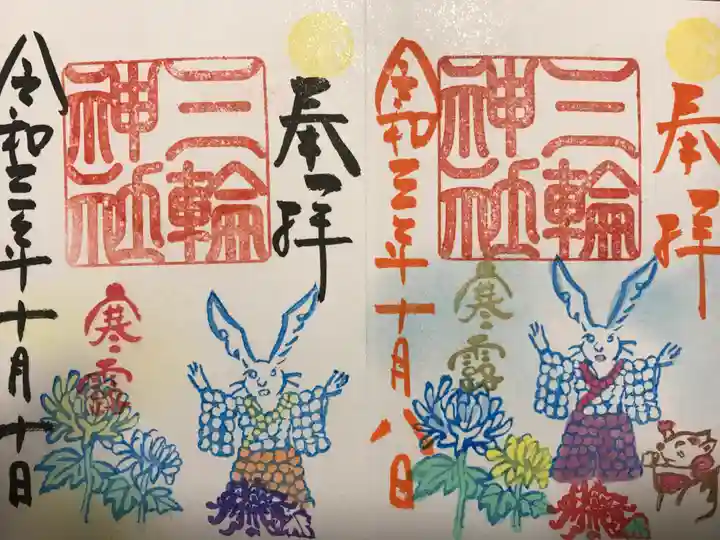 奉拝
三輪
神社
寒露
令和三年十月八日
奉拝
三輪
神社
寒露
令和三年十月十日